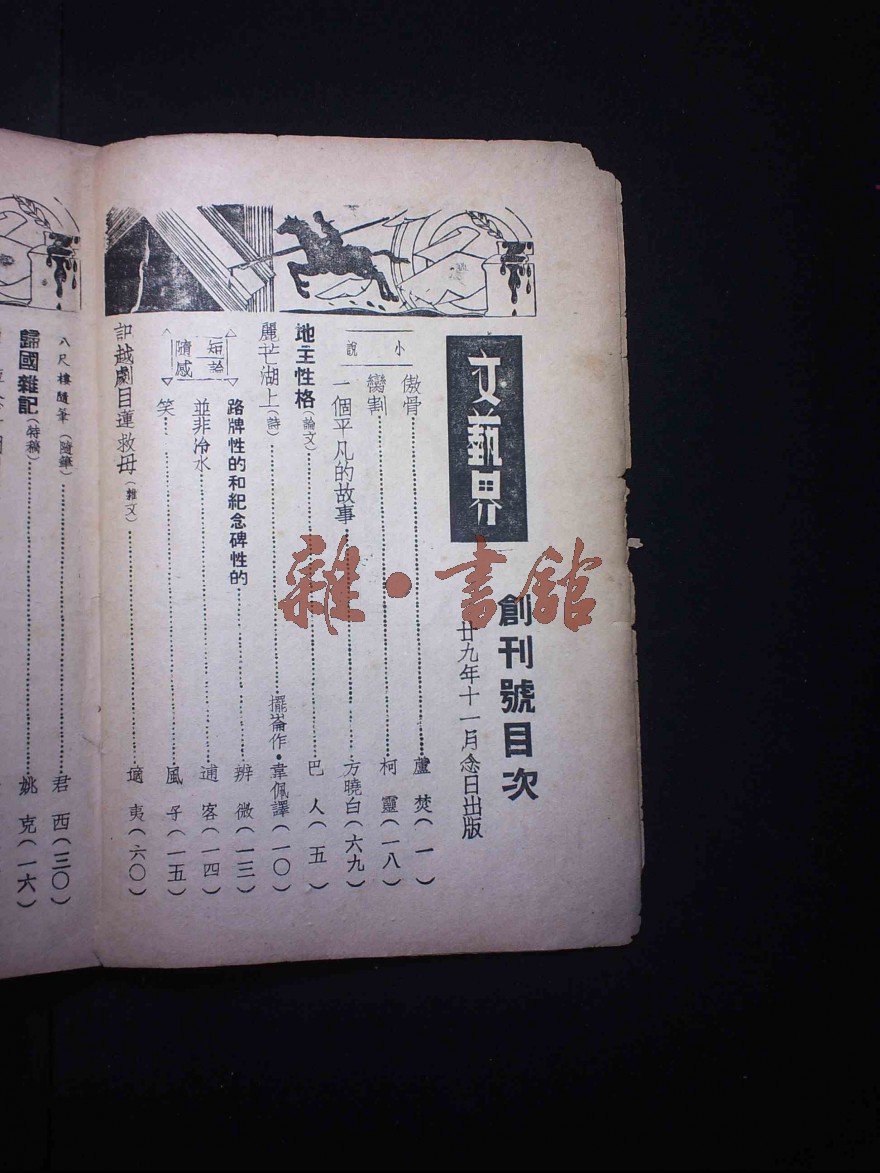 文藝界
創刊號目次
廿九年十一月念日出版
小說
傲骨……蘆焚(一)
臠割……柯靈(一八)
一個平凡的故事……方曉白(六九)
地主性格(論文)……巴人(五)
麗芒湖上(詩)……擺崙作•韋佩譯(一〇)
短論
隨感
路牌性的和紀念碑性的……辨微(一三)
並非冷水……逋客(一四)
笑……風子(一五)
記越劇目連救母(雜文)……適夷(六〇)
八尺樓隨筆(隨筆)……君西(三〇)
歸國雜記(特稿)……姚克(一六)
雜•書館